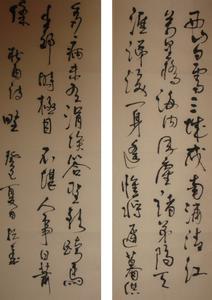 西山白雪三城戍南浦清江
萬里橋海內風塵諸弟隔天
涯涕淚一身遙惟將遲暮供
多病未有涓埃答聖朝跨馬
出郊時極目不堪人事日蕭
條 杜甫詩 野 夏日